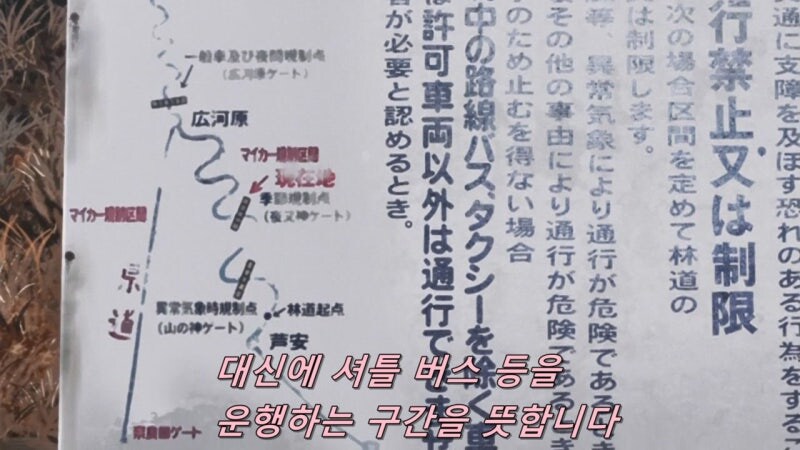 通に支障を及ぼす恐れのある行為をするこ
行禁止又は制限
次の場合区間を定めて林道の
は制限します。
等、異常気象により通行が危険であるとき
その他の事由により通行が危険であるとき
のため止むを得ない場合
中の路線バス、タクシーを除く車
は許可車両以外は通行できませ
が必要と認めるとき。
一般車及び夜間規制点
(広河原ゲート)
広河原
マイカー規制区間
現在地
季節規制点
(夜叉神ゲート)
マイカー規制区間
県道
異常気象時規制点
(山の神ゲート)
林道起点
芦安
ゲート
대신에 셔틀 버스 등을
운행하는 구간을 뜻합니다